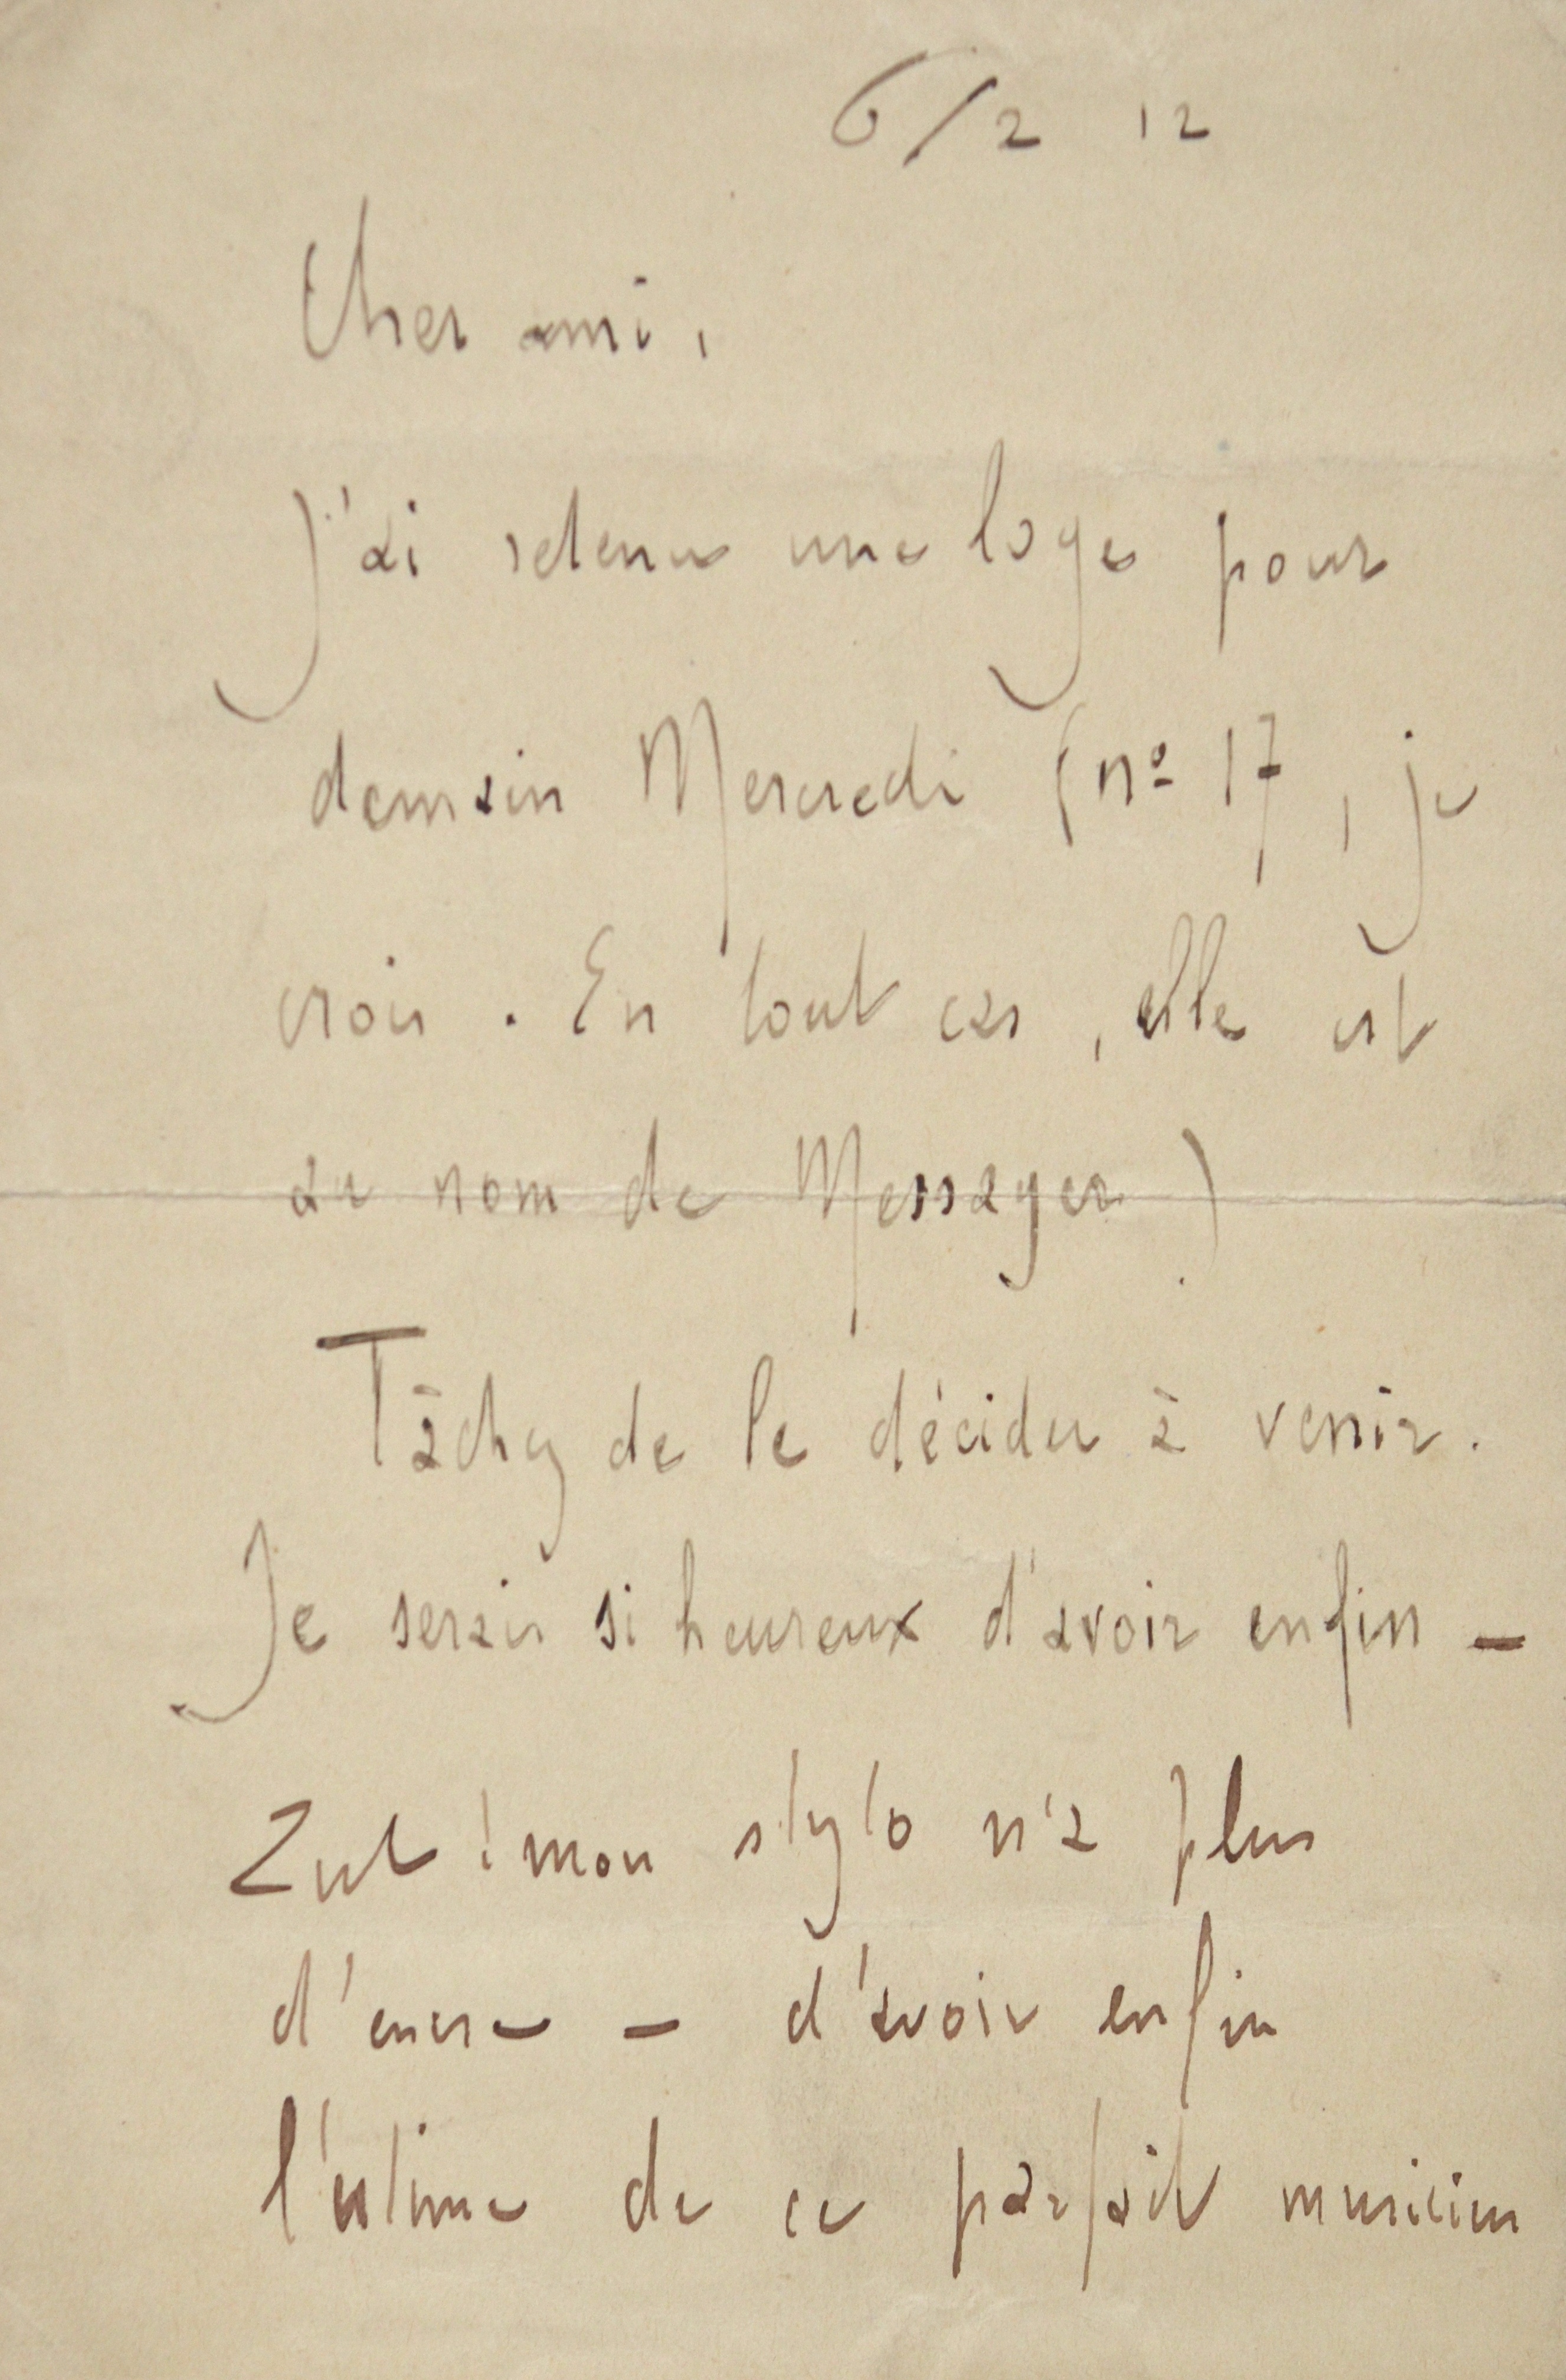 6/2 12
Cher ami,
J'ai retenu une loge pour
demain Mercredi (nº 17, je
crois. En tout cas, elle est
au nom de Messager)
Tâchez de le décider à venir.
Je serais si heureux d'avoir enfin —
Zut ! mon stylo n'a plus
d'encre — d'avoir enfin
l'estime de ce parfait musicien